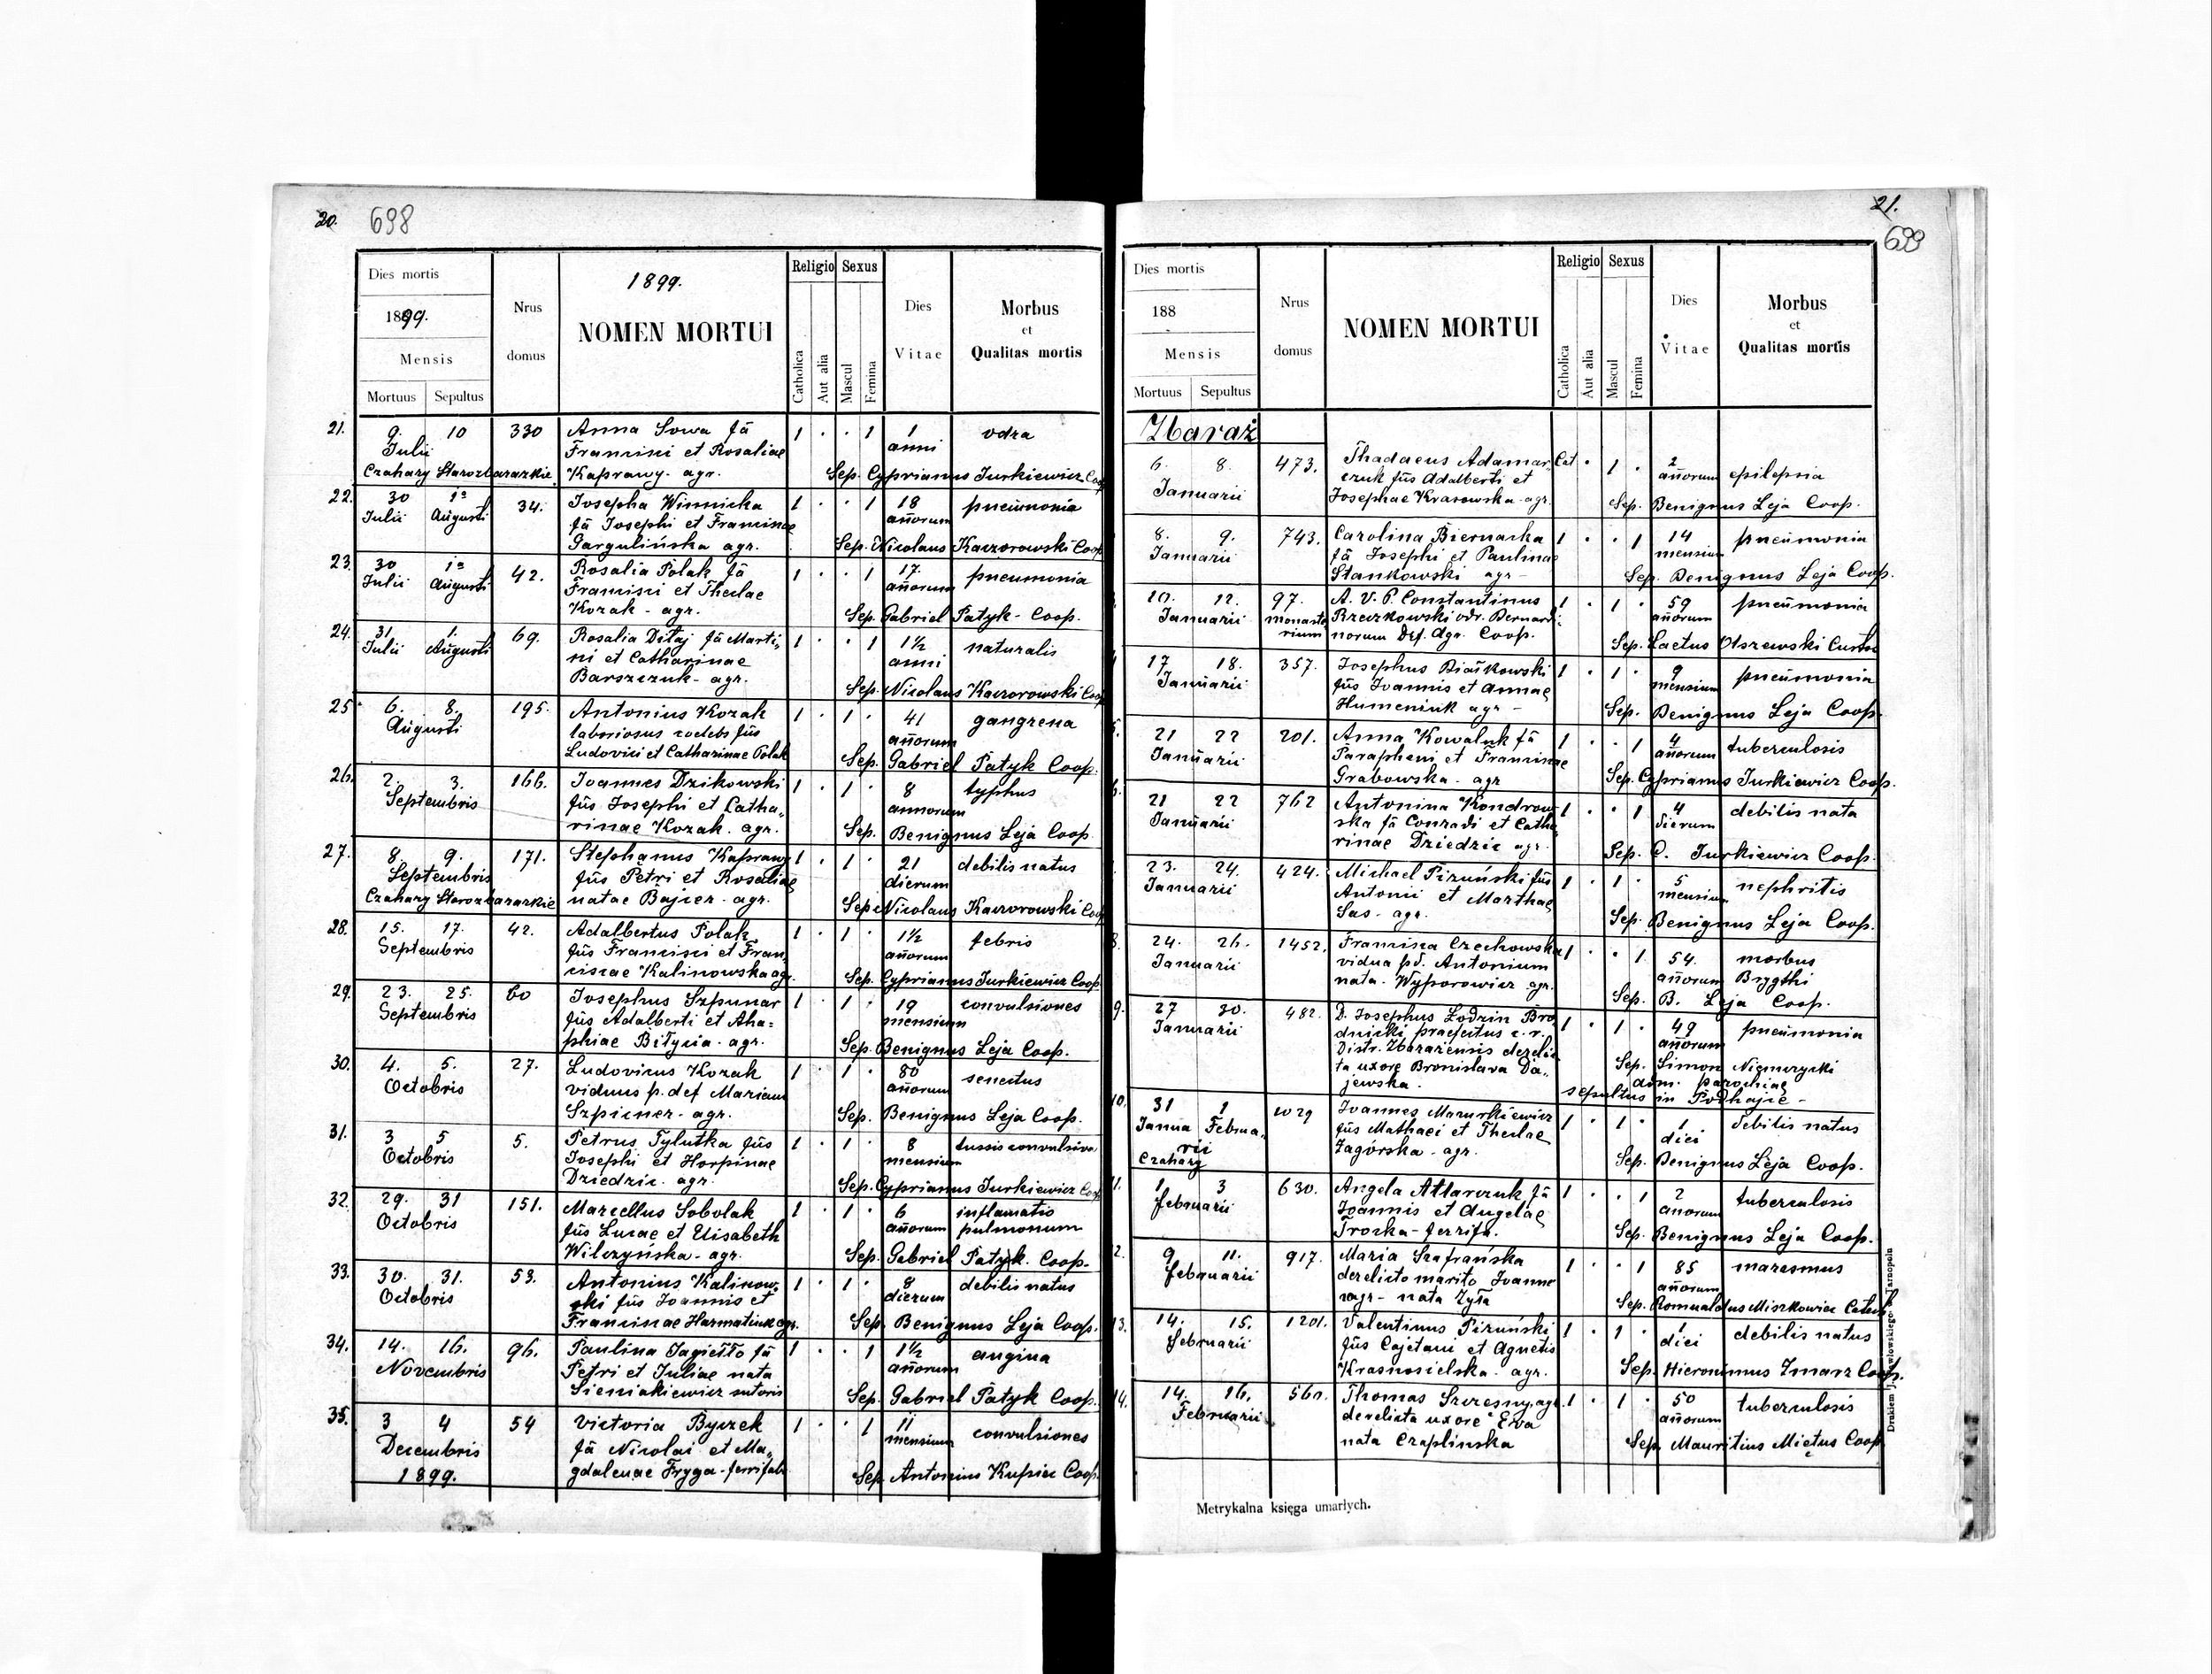 20. 698
Dies mortis
1899.
Mensis
Mortuus Sepultus
Nrus
domus
1899.
NOMEN MORTUI
Religio Sexus
Catholica
Aut alia
Mascul
Femina
Dies
Vitae
Morbus
et
Qualitas mortis
21. 9. 10 330 Anna Sowa fa 1 . . 1 1 odra
Julii Francisci et Rosaliae anni
Czahary Starozbarazkie Kaprawy. agr. Sep. Cyprianus Jurkiewicz Coop
22. 30 1a 34. Josepha Winnicka 1 . . 1 18 pneumonia
Julii Augusti fa Josephi et Franciscae añorum
Gargulińska agr. Sep. Nicolaus Kaczorowski Coop
23. 30 1a 42. Rosalia Polak fa 1 . . 1 17. pneumonia
Julii Augusti Francisci et Theclae añorum
Kozak - agr. Sep. Gabriel Patyk - Coop.
24. 31 1. 69. Rosalia Ditaj fa Marti- 1 . . 1 1½ naturalis
Julii Augusti ni et Catharinae anni
Barszczuk - agr. Sep. Nicolaus Kaczorowski Coop
25 6. 8. 195. Antonius Kozak 1 . 1 . 41 gangrena
Augusti laboriosus coelebs fus añorum
Ludovici et Catharinae Polak Sep. Gabriel Patyk Coop.
26. 2. 3. 166. Joannes Dzikowski 1 . 1 . 8 typhus
Septembris fus Josephi et Catha- annorum
rinae Kozak. agr. Sep. Benignus Leja Coop
27. 8. 9. 171. Stephanus Kaprawy 1 . 1 . 21 debilis natus
Septembris fus Petri et Rosaliae dierum
Czahary Starozbarazkie natae Bajcer - agr. Sep. Nicolaus Kaczorowski Coop
28. 15. 17. 42. Adalbertus Polak 1 . 1 . 1½ febris
Septembris fus Francisci et Fran- añorum
ciscae Kalinowska agr. Sep. Cyprianus Jurkiewicz Coop.
29. 23. 25. 60 Josephus Szpunar 1 . 1 . 19 convulsiones
Septembris fus Adalberti et Aha- mensium
phiae Bitycia. agr. Sep. Benignus Leja Coop.
30. 4. 5. 27. Ludovicus Kozak 1 . 1 . 80 senectus
Octobris viduus p. def Mariam añorum
Szpicner - agr. Sep. Benignus Leja Coop.
31. 3 5 5. Petrus Tylutka fus 1 . 1 . 8 tussis convulsiva
Octobris Josephi et Horpinae mensium
Dziedzic. agr. Sep. Cyprianus Jurkiewicz Coop
32. 29. 31 151. Marcellus Sobolak 1 . 1 . 6 inflamatio
Octobris fus Lucae et Elisabeth añorum pulmonum
Wilczyńska - agr. Sep. Gabriel Patyk. Coop.
33. 30. 31. 53. Antonius Kalinow- 1 . 1 . 8 debilis natus
Octobris ski fus Joannis et dierum
Franciscae Harmatiuk agr. Sep. Benignus Leja Coop.
34. 14. 16. 96. Paulina Jagiełło fa 1 . . 1 1½ angina
Novembris Petri et Juliae nata añorum
Sieniakiewicz sutoris Sep. Gabriel Patyk Coop.
35. 3 4 54 Victoria Byczek 1 . . 1 11 convulsiones
Decembris fa Nicolai et Ma- mensium
1899. gdalenae Fryga - ferrifab Sep. Antonius Kupiec Coop.
21.
699
Dies mortis
188
Mensis
Mortuus Sepultus
Nrus
domus
NOMEN MORTUI
Religio Sexus
Catholica
Aut alia
Mascul
Femina
Dies
Vitae
Morbus
et
Qualitas mortis
Zbaraż
6. 8. 473. Thadaeus Adamar- Cat . 1 . 2 epilepsia
Januarii czuk fus Adalberti et añorum
Josephae Krasowska - agr. Sep. Benignus Leja Coop.
8. 9. 743. Carolina Biernacka 1 . . 1 14 pneumonia
Januarii fa Josephi et Paulinae mensium
Stankowski agr - Sep. Benignus Leja Coop.
10. 12. 97. A. V. P. Constantinus 1 . 1 . 59 pneumonia
Januarii monaste Rzeczkowski odr. Bernardi- añorum
rium norum Def. dgr. Coop. Sep. Laetus Olszewski Custos
17 18. 357. Josephus Białkowski 1 . 1 . 9 pneumonia
Januarii fus Joannis et Annae mensium
Humeniuk agr - Sep. Benignus Leja Coop.
5. 21 22 201. Anna Kowaluk fa 1 . . 1 4 tuberculosis
Januarii Parapheni et Franciscae añorum
Grabowska - agr Sep. Cyprianus Jurkiewicz Coop.
6. 21 22 762 Antonina Kondrow- 1 . . 1 4 debilis nata
Januarii ska fa Conradi et Catha- dierum
rinae Dziedzic agr. Sep. C. Jurkiewicz Coop.
23. 24. 424. Michael Piruński fus 1 . 1 . 5 nephritis
Januarii Antonii et Marthae mensium
Sas - agr. Sep. Benignus Leja Coop.
8. 24. 26. 1452. Francisca Czechowska 1 . . 1 54. morbus
Januarii vidua pd. Antonium añorum Brygthi
nata - Wyporowicz agr. Sep. B. Leja Coop.
9. 27 30. 482. D. Josephus Łodzin Bro 1 . 1 . 49 pneumonia
Januarii dnicki praefectus c. r. añorum
Distr. Zbarazensis derelic Sep. Simon Niemczycki
ta uxore Bronislava Da- adm. parochiae
jewska. sepultus in Podhajce -
10. 31 1 1029 Joannes Mazurkiewicz 1 . 1 . 1 debilis natus
Janua Februa- fus Mathaei et Theclae diei
rii Zagórska - agr.
Czahary Sep. Benignus Leja Coop.
11. 1 3 630. Angela Atlarczuk fa 1 . . 1 2 tuberculosis
februarii Joannis et Angelae anorum
Trocka - ferrifa. Sep. Benignus Leja Coop.
2. 9 11. 917. Maria Szafrańska 1 . . 1 85 marasmus
februarii derelicto marito Joanne añorum
agr - nata Zyła Sep. Romualdus Miszkowicz Catech.
13. 14. 15. 1201. Valentinus Piruński 1 . 1 . 1 debilis natus
februarii fus Cajetani et Agnetis diei
Krasnosielska - agr. Sep. Hieronimus Zmarz Coop.
14. 14. 16. 560. Thomas Szczesny. agr. 1 . 1 . 50 tuberculosis
Februarii derelicta uxore Eva añorum
nata Czaplinska Sep. Mauritius Miętus Coop
Metrykalna księga umarłych.
Drukiem J. Pawłowskiego w Tarnopolu